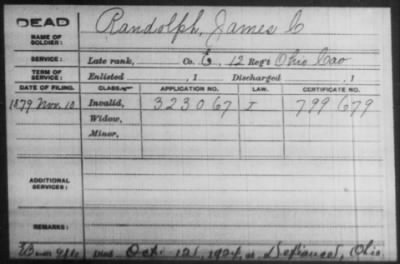 DEAD
NAME OF SOLDIER: Randolph, James C
SERVICE: Late rank, Co. E, 12 Reg't Ohio Cav
TERM OF SERVICE: Enlisted , 1 Discharged , 1
DATE OF FILING. CLASS. APPLICATION NO. LAW. CERTIFICATE NO.
1879 Nov. 10 Invalid, 323067 I 799679
Widow,
Minor,
ADDITIONAL SERVICES:
REMARKS:
Died Oct 121, 1924, at Defiance, Ohio